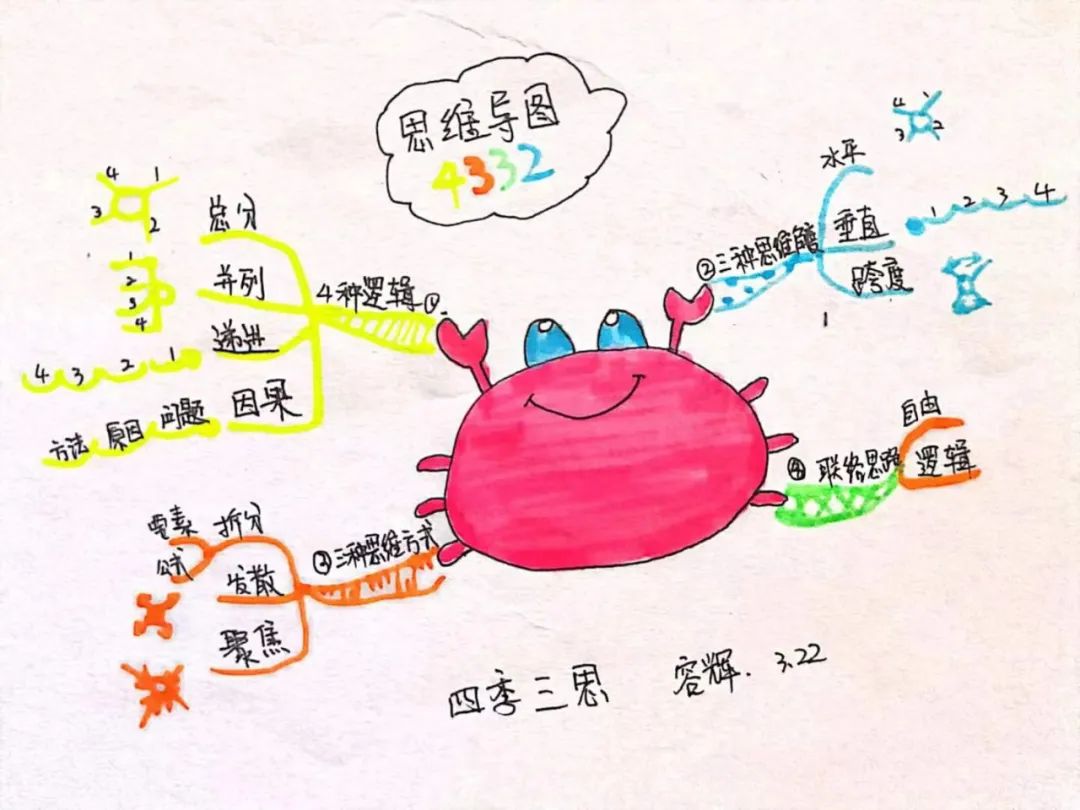 思维导图
4332
4种逻辑①
总分
4 1
3 2
并列
1
2
3
4
递进
4 3 2 1
因果
方法 原因 问题
②三种思维角度
水平
4 1
3 2
垂直
1 2 3 4
跨度
1
③三种思维方式
拆分
要素
公式
发散
聚焦
④ 联络思路
自由
逻辑
四季三思 容辉. 3.22